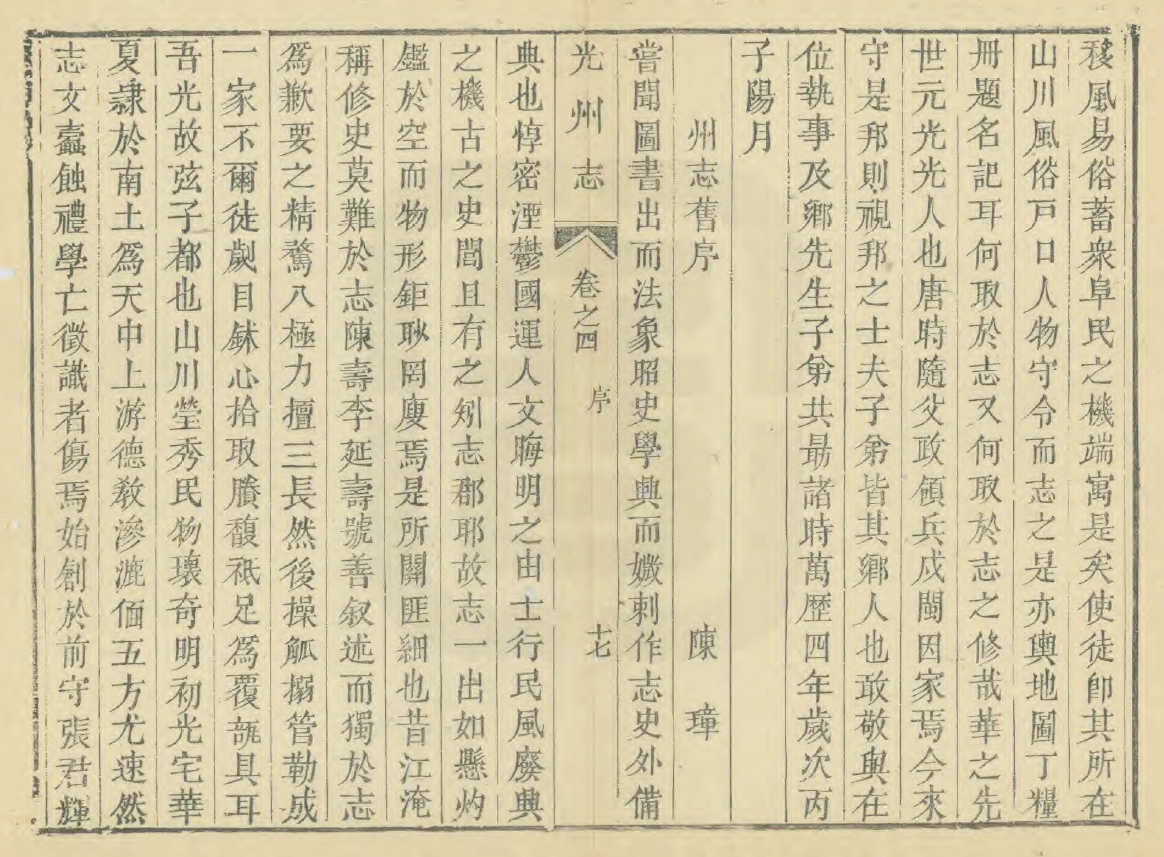 移風易俗蓄衆阜民之機端寓是矣使徒卽其所在
山川風俗戸口人物守令而志之是亦輿地圖丁糧
冊題名記耳何取於志又何取於志之修哉華之先
世元光光人也唐時隨父政領兵戍閩因家焉今來
守是邦則視邦之士夫子弟皆其鄉人也敢敬與在
位執事及鄉先生子弟共最諸時萬歷四年歲次丙
子陽月
州志舊序 陳璋
嘗聞圖書出而法象昭史學興而媺刺作志史外備
光州志 卷之四 序 十七
典也惇密湮鬱國運人文晦明之由士行民風廢興
之機古之史閭且有之矧志郡耶故志一出如懸灼
鑑於空而物形鉅耖罔廋焉是所關匪細也昔江淹
稱修史莫難於志陳壽李延壽號善叙述而獨於志
爲歉要之精騖八極力擅三長然後操觚搦管勒成
一家不爾徒劌目鉥心拾取賸馥祗足爲覆瓿具耳
吾光故弦子都也山川瑩秀民物瓌奇明初光宅華
夏隷於南土爲天中上游德敎滲漉偭五方尤速然
志文蠧蝕禮學亡徵識者傷焉始創於前守張君輝